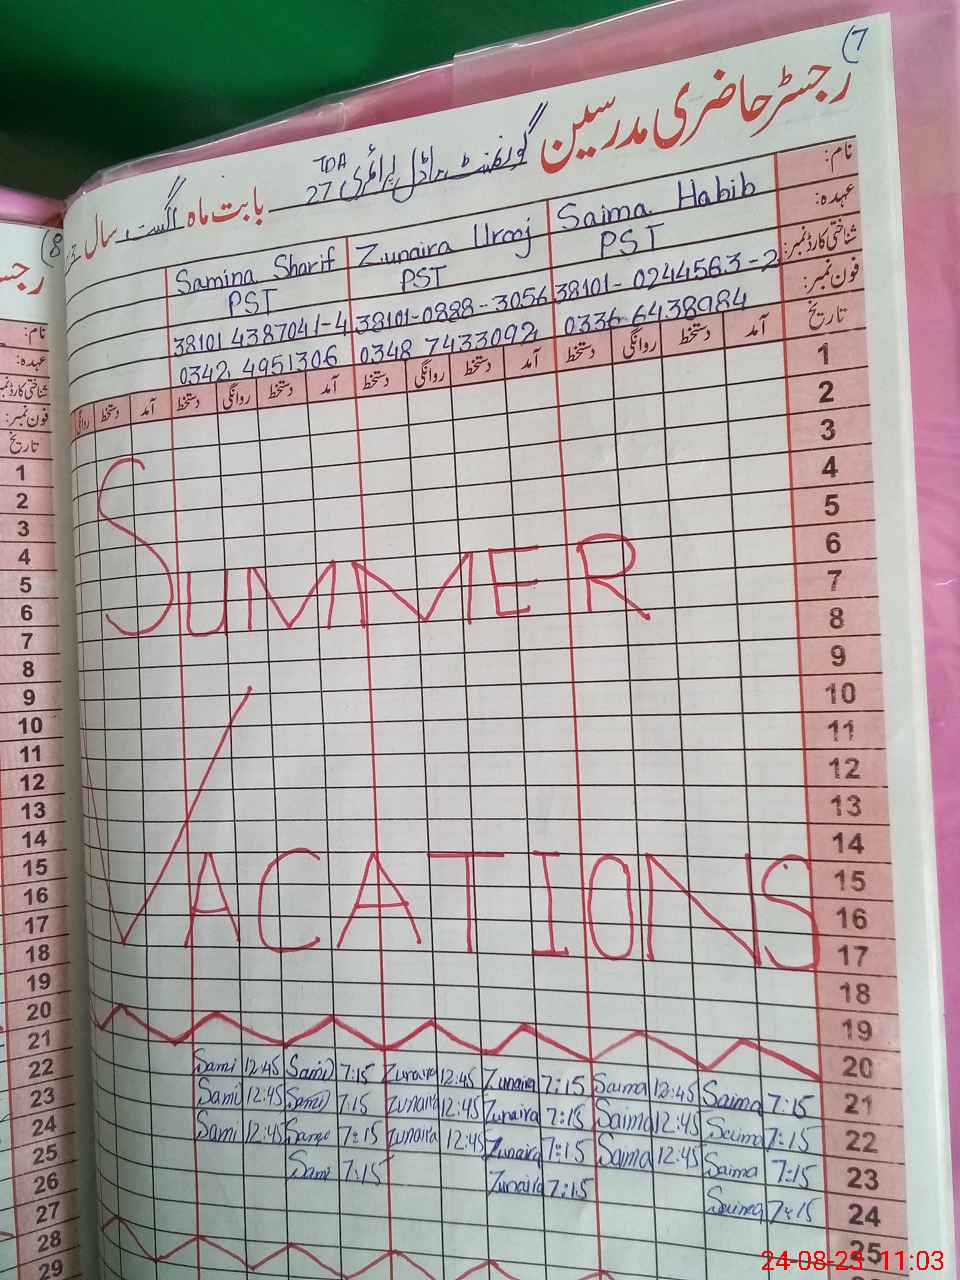 (7
رجسٹر حاضری مدرسین گورنمنٹ ماڈل پرائمری 27 TDA بابت ماہ اگست سال
نام: Saima Habib Zunaira Urooj Samina Sharif
عہدہ: PST PST PST
شناختی کارڈ نمبر: 38101-0244563-2 38101-0888-3056 38101 4387041-4
فون نمبر: 0336-6438984 0348 7433092 0342 4951306
تاریخ آمد دستخط روانگی دستخط آمد دستخط روانگی دستخط آمد دستخط روانگی دستخط آمد دستخط روانگی
1
2
3
4
5
6
7
8
SUMMER
9
10
11
12
13
14
15
16
17
VACATIONS
18
19
20
Sami 12:45 Sami 7:15 Zunaira 12:45 Zunaira 7:15 Saima 12:45 Saima 7:15 21
Sami 12:45 Sami 7:15 Zunaira 12:45 Zunaira 7:15 Saima 12:45 Saima 7:15 22
Sami 12:45 7:15 Zunaira 12:45 Zunaira 7:15 Saima 12:45 Saima 7:15 23
Sami 7:15 Zunaira 7:15 Saima 7:15 24
25
(8
رجس
نام:
عہدہ:
شناختی کارڈ نمبر
فون نمبر:
تاریخ
1
2
3
4
5
6
7
8
9
10
11
12
13
14
15
16
17
18
19
20
21
22
23
24
25
26
27
28
29
24-08-23 11:03